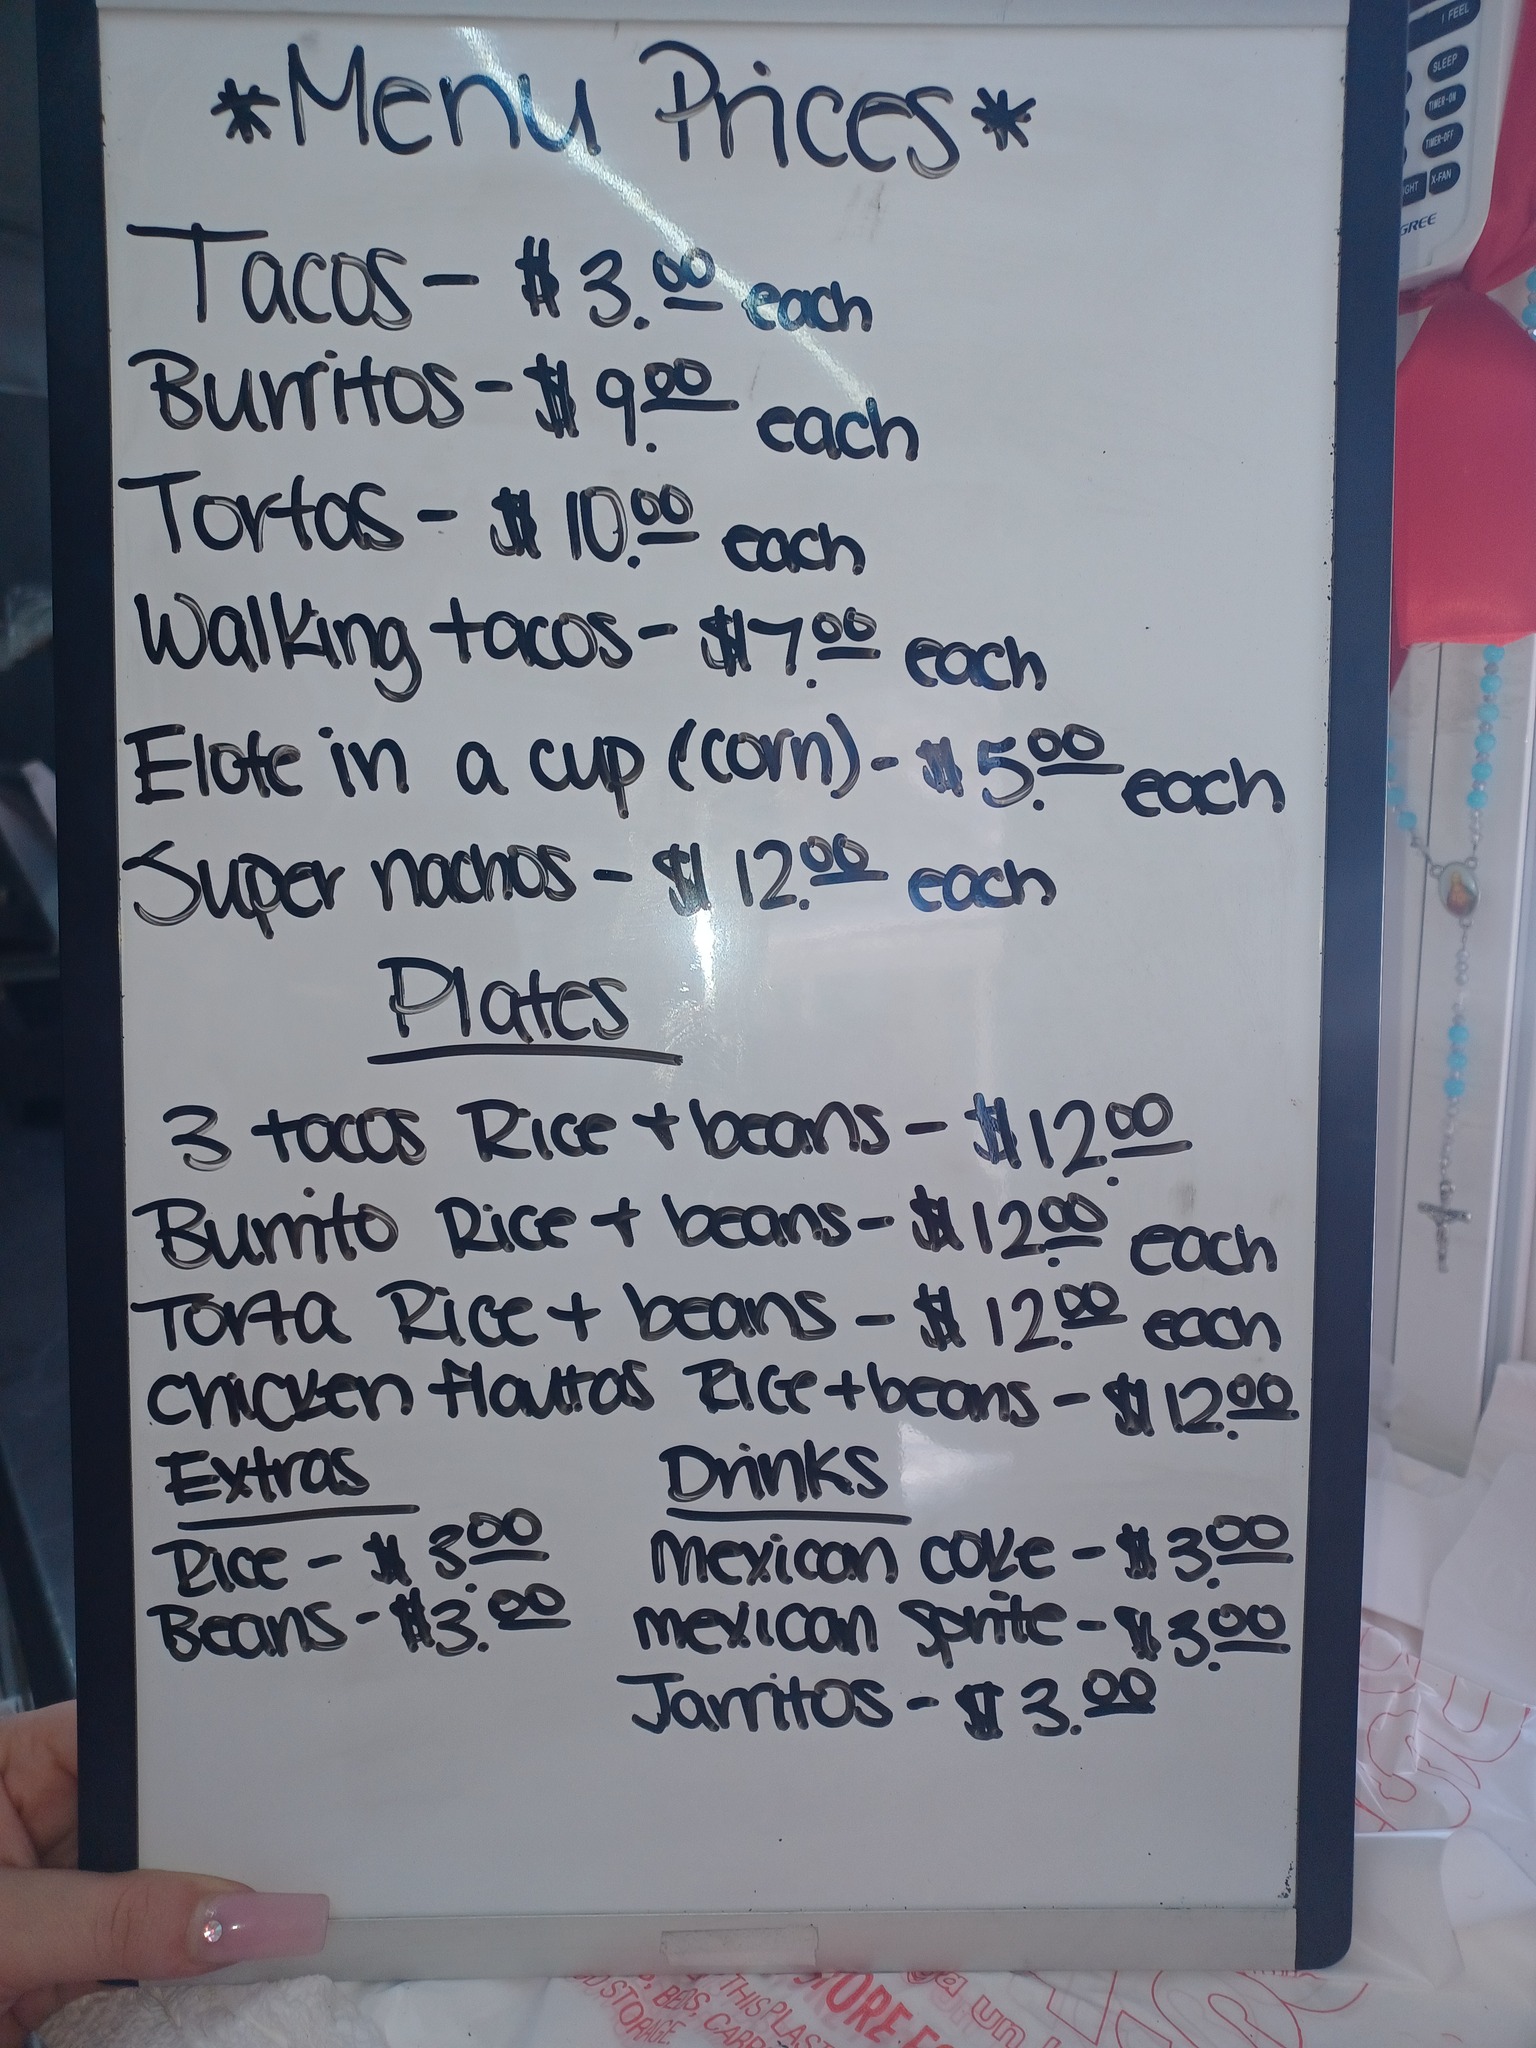 *Menu Prices*
Tacos - $3.00 each
Burritos - $9.00 each
Tortas - $10.00 each
Walking tacos - $7.00 each
Elote in a cup (corn) - $5.00 each
Super nachos - $12.00 each
Plates
3 tacos Rice + beans - $12.00
Burrito Rice + beans - $12.00 each
Torta Rice + beans - $12.00 each
chicken flautas Rice + beans - $12.00
Extras
Rice - $3.00
Beans - $3.00
Drinks
mexican coke - $3.00
mexican sprite - $3.00
Jarritos - $3.00
I FEEL
SLEEP
TIMER-ON
TIMER-OFF
X-FAN
GREE
BEDS, CARR
THIS PLAST
STORE
un